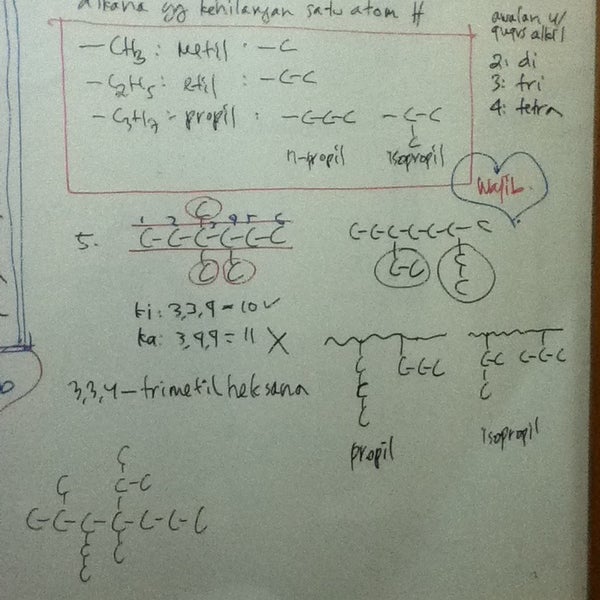 alkana yg kehilangan satu atom H
awalan u/
gugus alkil
2: di
3: tri
4: tetra
-CH3: Metil: -C
-C2H5: etil: -C-C
-C3H7: propil: -C-C-C -C-C
C
n-propil isopropil
Wajib
C
1 2 3 4 5 6
5. C-C-C-C-C-C
C C
C-C-C-C-C-C-C
C-C C
C
C
ki: 3,3,4 = 10 ✓
ka: 3,4,4 = 11 X
3,3,4-trimetil heksana
C C-C-C
C
C
C
propil
C-C C-C-C
C
isopropil
C
C C-C
C-C-C-C-C-C-C
C C
C C
C